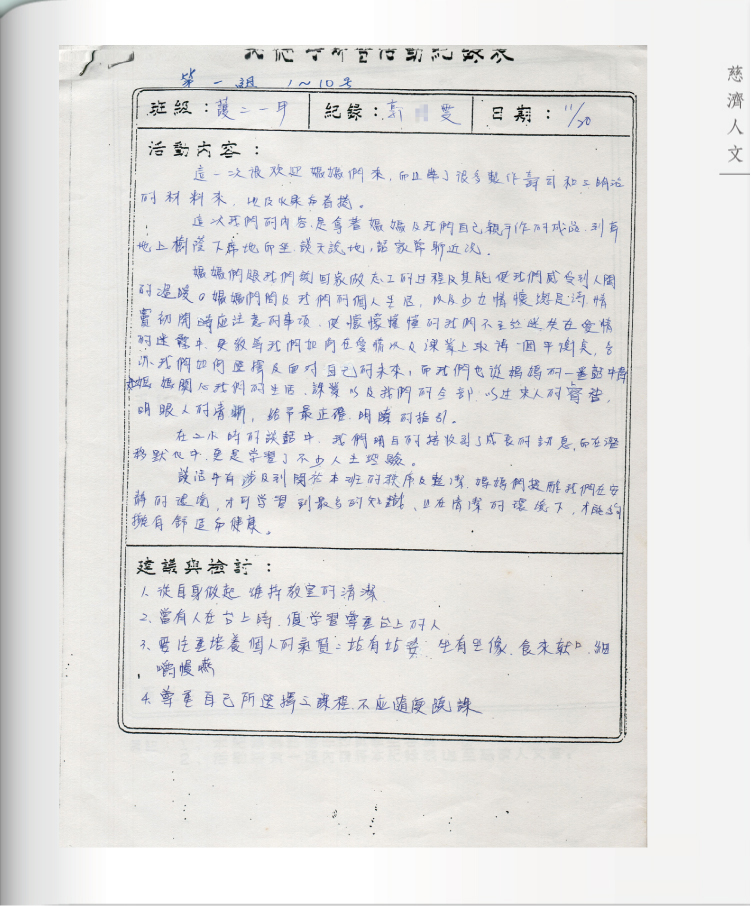 慈濟人文
活動紀錄表
第一組 1~10号
班級：護二一甲 紀錄： 雯 日期：11/20
活動內容：
這一次很欢迎媽媽們來，而且帶了很多製作壽司和三明治
的材料來，以及水果和
這次我們的內容，是拿著媽媽及我們自己親手作的成品，到草
地上樹蔭下席地而坐，談天說地，話家常聊近況。
媽媽們跟我們說回家做志工的過程及其能使我們感受到人間
的溫暖。媽媽們問及我們的個人生活，以及少女情懷總是詩情
竇初開時應注意的事項，使懵懵懂懂的我們不至於迷失在愛情
的迷霧中，更教導我們如何在愛情以及課業上取得一個平衡矣，告
訴我們如何選擇及面對自己的未來，而我們也從媽媽的一番話中得
知媽媽關心我們的生活、課業以及我們的全部，以过來人的
明眼人的清晰，給予最正確、明瞭的指引。
在二小時的談話中，我們明白的接收到了成長的訊息，而在潛
移默化中，更是學習了不少人生經驗。
談話中有涉及到關於本班的秩序及整潔，媽媽們提醒我們在安
靜的環境，才可學習到最多的知識，且在清潔的環境下，才能夠
擁有舒适和健康。
建議與檢討：
1. 從自身做起，維持教室的清潔
2. 當有人在台上時，須學習尊重台上的人
3. 要注重培養個人的氣質：站有站姿，坐有坐像，食來就口，細
嚼慢嚥
4. 尊重自己所選擇之課程，不应隨便蹺課